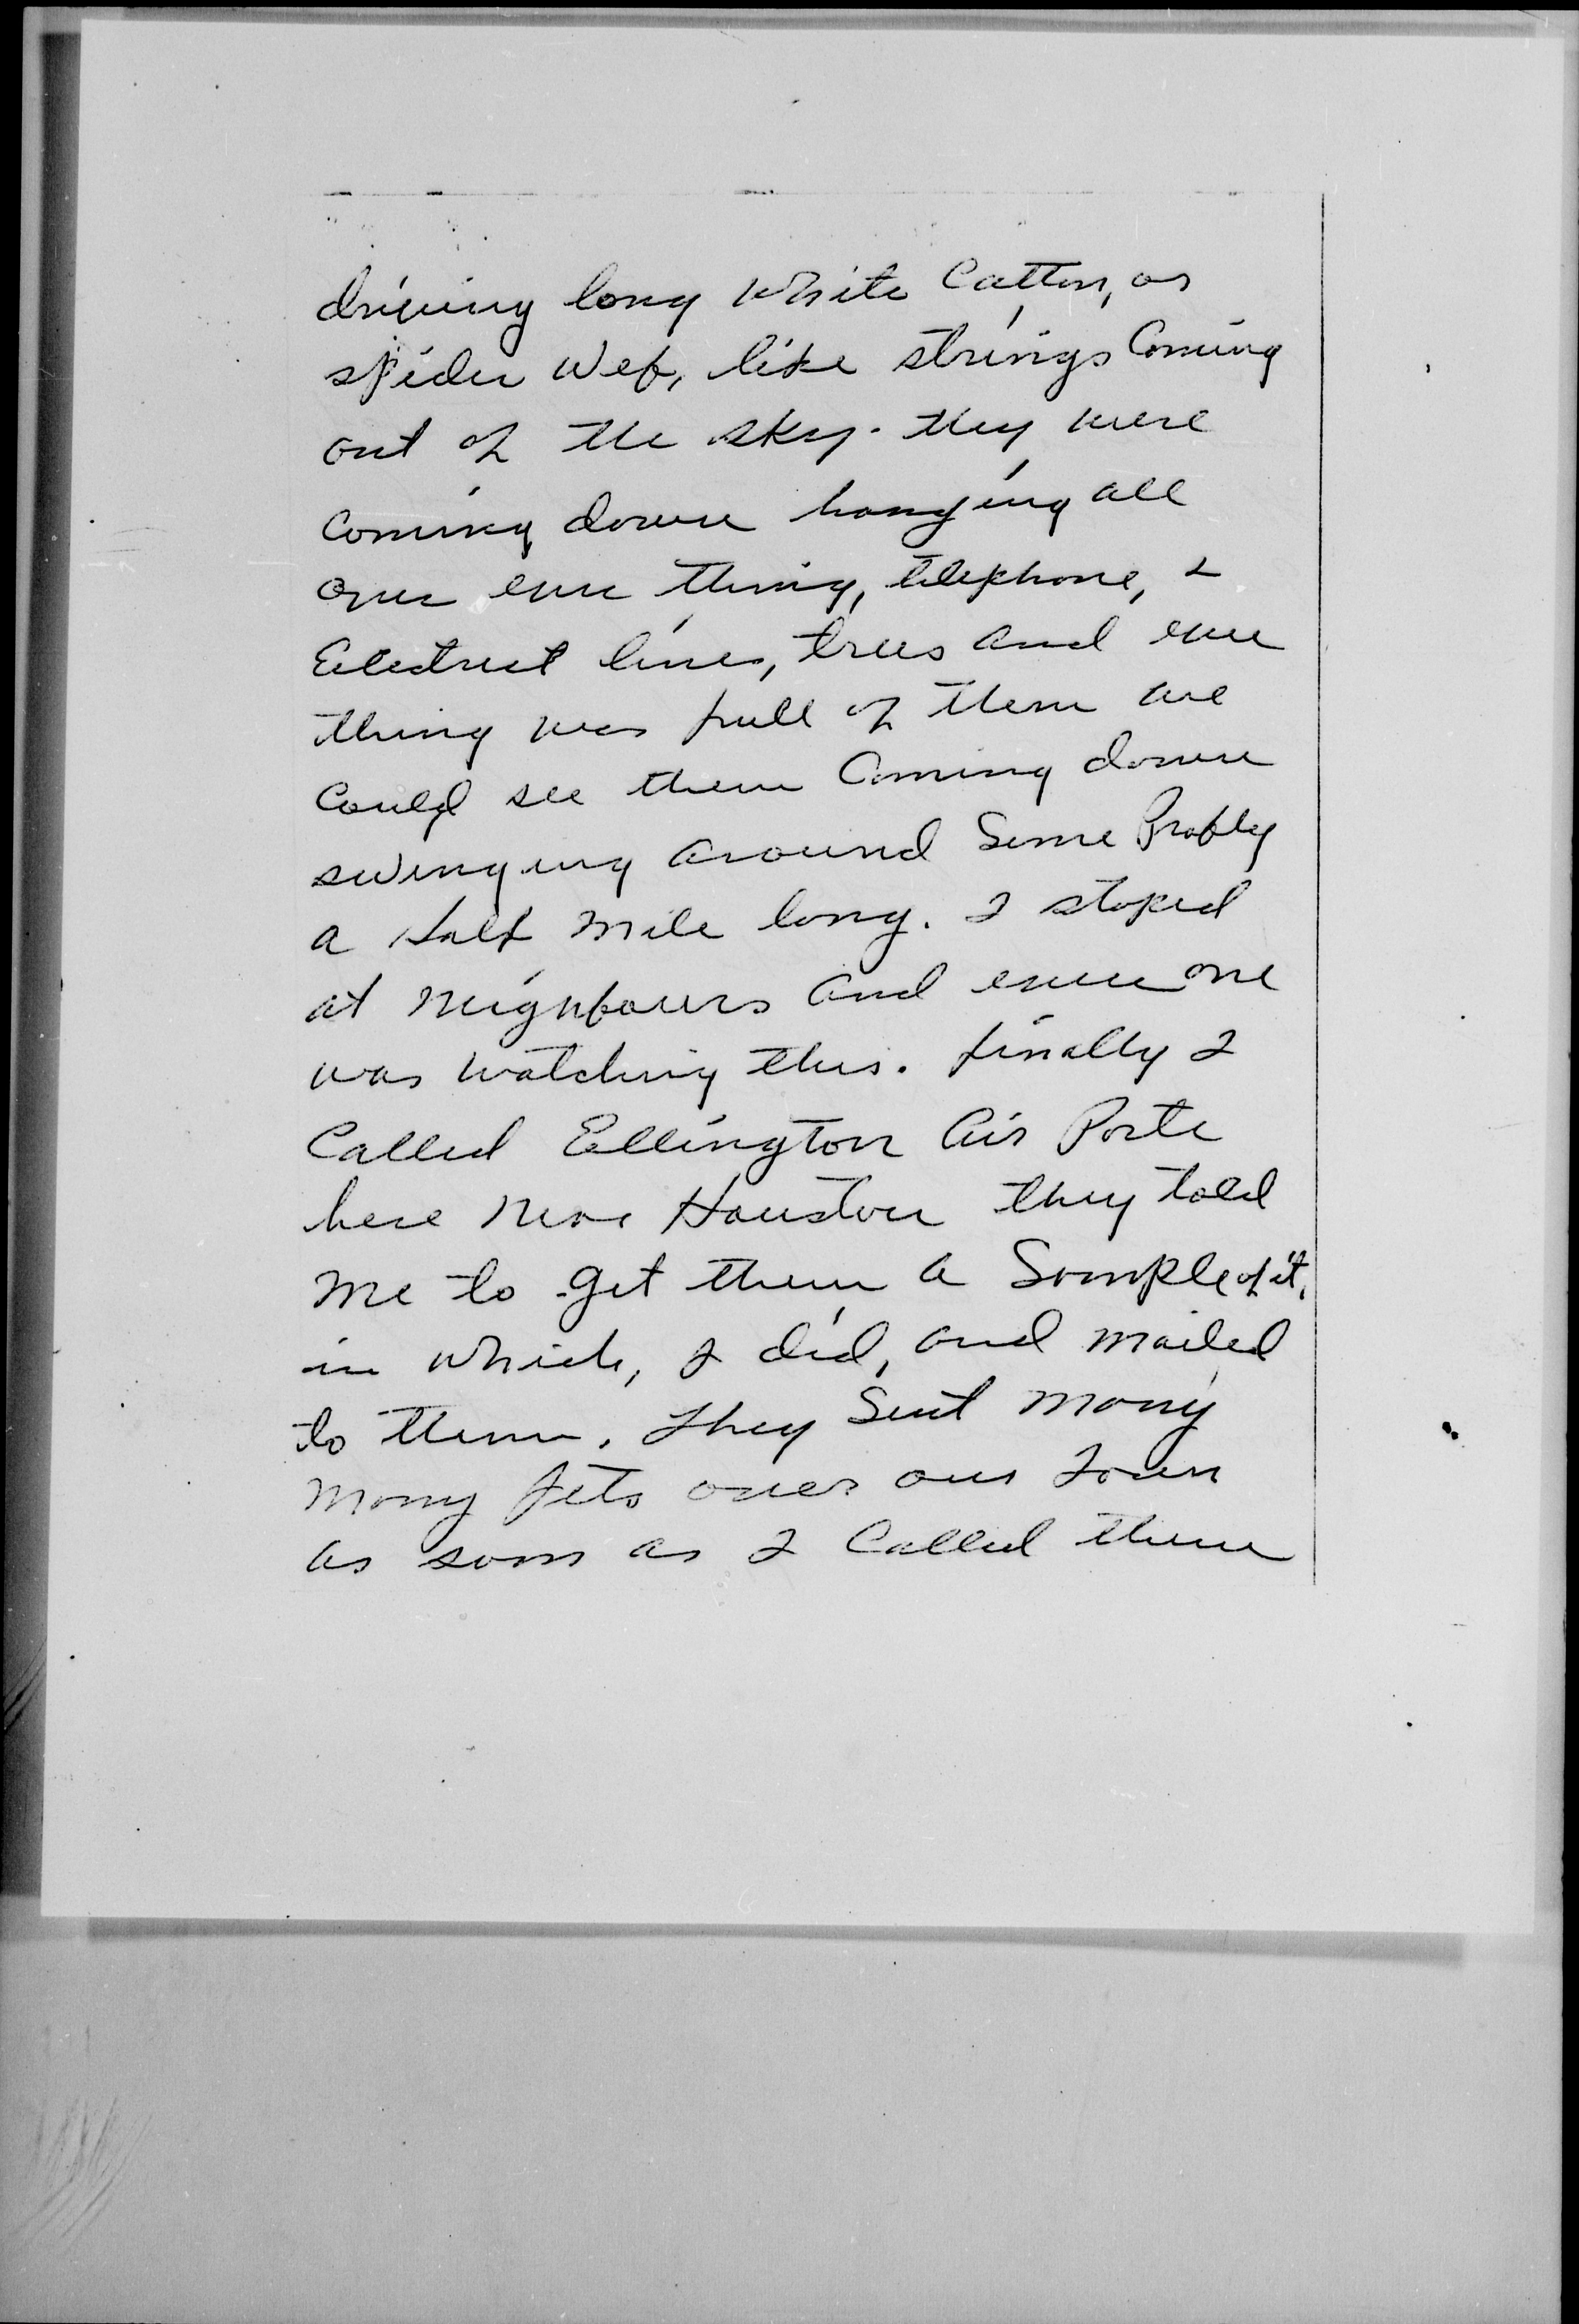 driving long white Catton, or
spider Web, like strings Coming
out of the sky. they were
Coming down hanging all
over eve thing, telephone, &
Electrict lines, trees and eve
thing was full of them we
Could see them Coming down
swinging around Some Probly
a Half mile long. I stoped
at neighbours and eveu one
was watching this. finally I
Called Ellington Air Porte
here near Houston they told
me to get them a Sample of it,
in which, I did, and mailed
to them. They Sent many
many Jets over our Town
as soon as I Called them